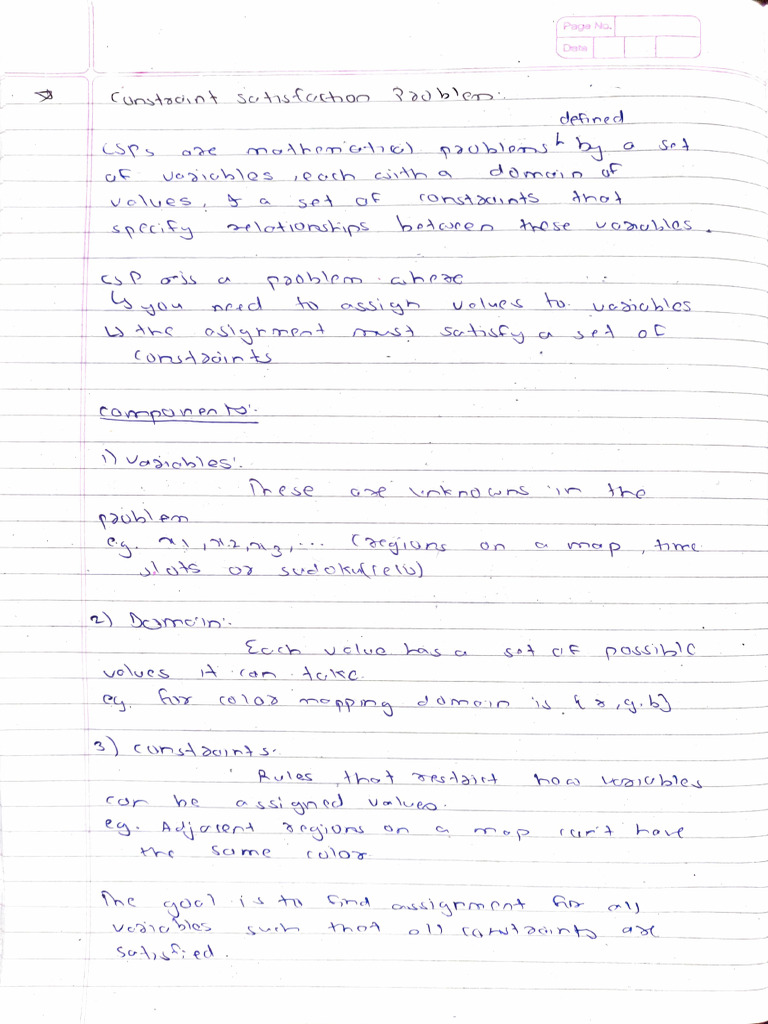 Page No.
Date
Constraint Satisfaction Problem:
defined
CSPs are mathematical problems by a set
of variables, each with a domain of
values, & a set of constraints that
specify relationships between these variables.
CSP is a problem where
↳ you need to assign values to variables
↳ the asignment must satisfy a set of
constraints
Components:
1) Variables:
These are unknowns in the
problem
e.g. x1, x2, x3, ... (regions on a map, time
slots or sudoku cells)
2) Domain:
Each value has a set of possible
values it can take.
eg. for color mapping domain is {r, g, b}
3) Constraints:
Rules that restrict how variables
can be assigned values.
eg. Adjacent regions on a map can't have
the same color
The goal is to find assignment for all
variables such that all constraints are
satisfied.